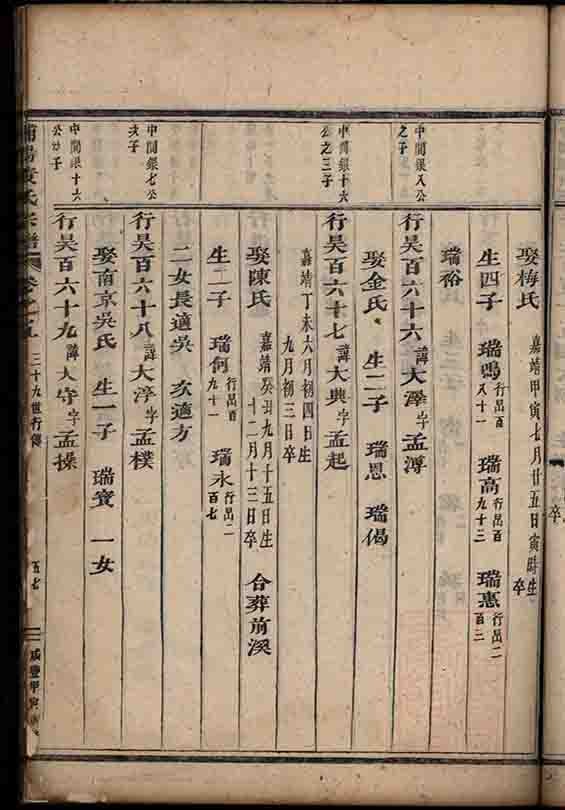 娶梅氏 嘉靖甲寅七月廿五日寅時生 卒
生四子 瑞鳴行呂百八十一 瑞高行呂百九十三 瑞惠行呂二百三
瑞裕
中開銀八公之子
行昊百六十六諱大澤字孟溥
娶金氏 生二子 瑞恩 瑞偈
中開銀十六公之三子
行昊百六十七諱大典字孟起
嘉靖丁未六月初四日生 九月初三日卒
娶陳氏 嘉靖癸丑九月十五日生 十二月十三日卒 合葬前溪
生二子 瑞何行呂百九十一 瑞永行呂二百七
二女長適吳 次適方
中開銀七公次子
行昊百六十八諱大淳字孟樸
娶南京吳氏 生一子 瑞賓 一女
中開銀十六公 子
行昊百六十九諱大守字孟操
氏宗譜 卷之五 三十九世行傳 五七 咸豐甲寅